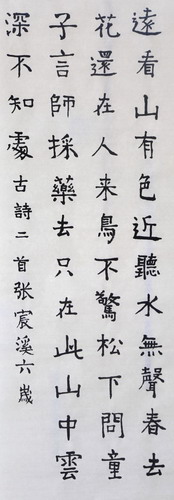 遠看山有色近聽水無聲春去
花還在人来鳥不驚松下問童
子言師採藥去只在此山中雲
深不知處古詩二首张宸溪六歲